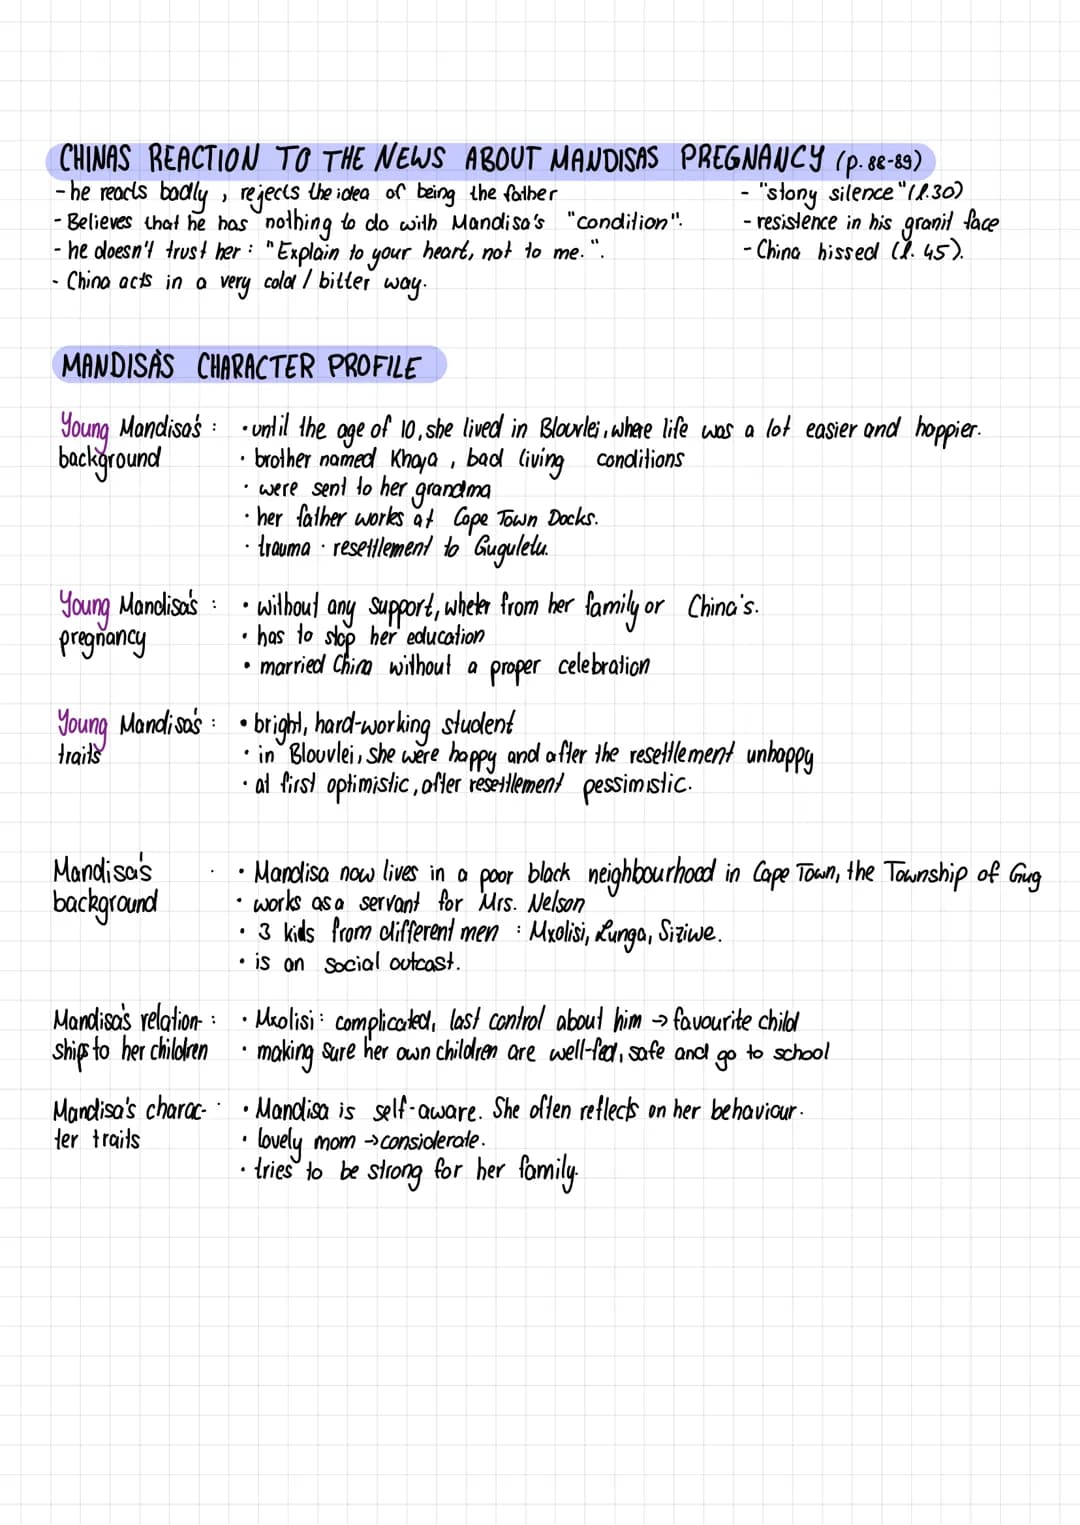 CHINAS REACTION TO THE NEWS ABOUT MANDISAS PREGNANCY (p. 88-89)
- he reacts badly, rejects the idea of being the father
- Believes that he has nothing to do with Mandisa's "condition".
- he doesn't trust her: "Explain to your heart, not to me.".
- China acts in a very cold / bitter way.
- "stony silence" (l.30)
- resistence in his granit face
- China hissed (l. 45).
MANDISA'S CHARACTER PROFILE
Young Mandisa's :
background
• until the age of 10, she lived in Blouvlei, where life was a lot easier and happier.
• brother named Khaya, bad living conditions
• were sent to her grandma
• her father works at Cape Town Docks.
• trauma · resettlement to Guguletu.
Young Mandisa's :
pregnancy
• without any support, wheter from her family or China's.
• has to stop her education
• married China without a proper celebration
Young Mandisa's :
traits
• bright, hard-working student
• in Blouvlei, she were happy and after the resettlement unhappy
• at first optimistic, after resettlement pessimistic.
Mandisa's
background
• Mandisa now lives in a poor black neighbourhood in Cape Town, the Township of Gug
• works as a servant for Mrs. Nelson
• 3 kids from different men : Mxolisi, Lunga, Siziwe.
• is an social outcast.
Mandisa's relation- :
ships to her children
• Mxolisi: complicated, lost control about him → favourite child
• making sure her own children are well-fed, safe and go to school
Mandisa's charac-
ter traits
• Mandisa is self-aware. She often reflects on her behaviour.
• lovely mom → considerate.
• tries to be strong for her family.